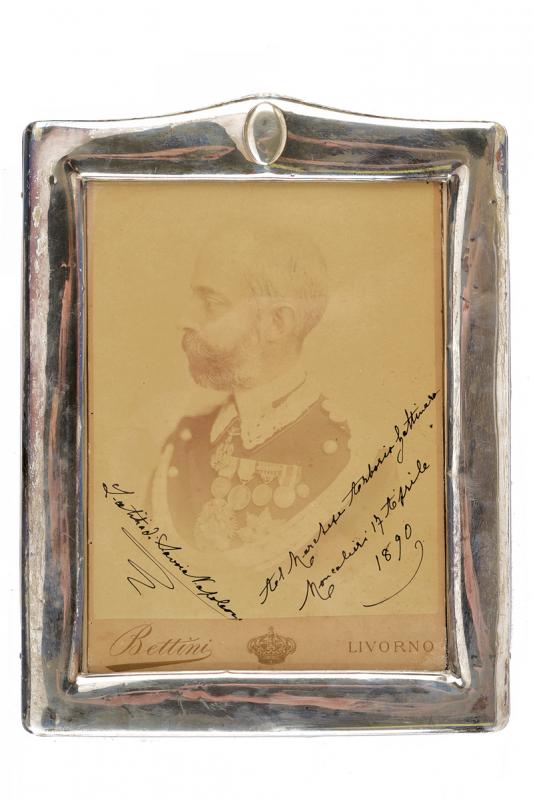 Lætitia di Savoia Napoleon
Al Marchese Arborio Gattinara
Moncalieri 17 Aprile
1890
Bettini
LIVORNO